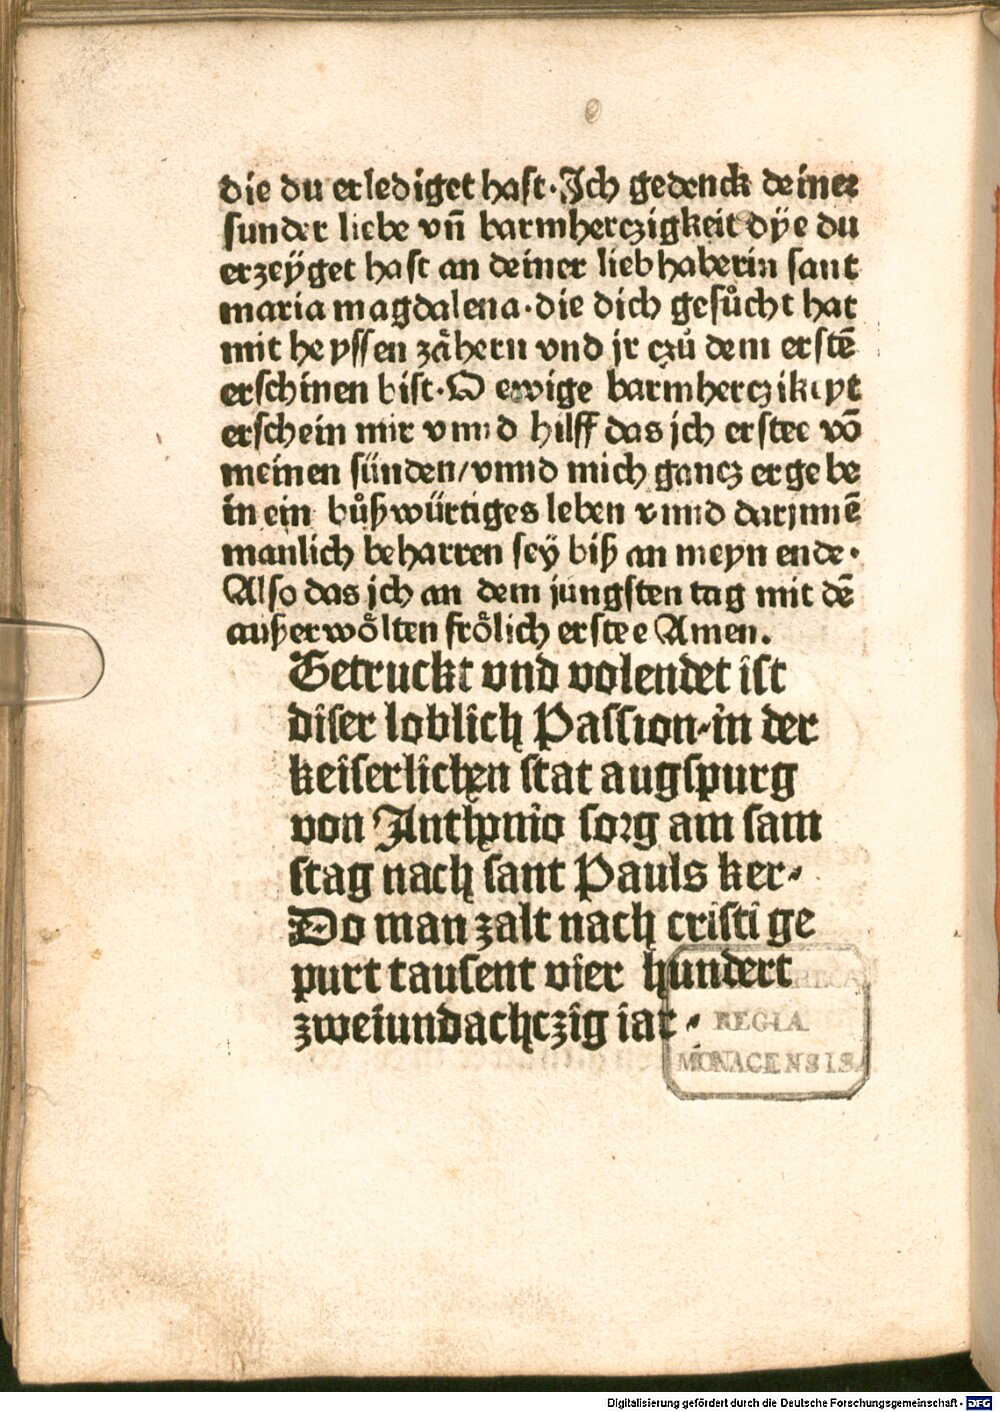 die du erlediget hast·Ich gedenck deiner
sunder liebe vñ barmherczigkeit dÿe du
erzeÿget hast an deiner liebhaberin sant
maria magdalena·die dich gesuͦcht hat
mit heyssen zaͤhern vnd jr czuͦ dem erstē
erschinen bist·O ewige barmherczikeyt
erschein mir vnnd hilff das jch erstee vō
meinen sünden/vnnd mich gancz ergebe
in ein buͦßwürtiges leben vnnd darjnnē
manlich beharren seÿ biß an meyn ende·
Also das jch an dem jungsten tag mit dē
außerwoͤlten froͤlich erstee Amen.
Getruckt vnd volendet ist
diser loblich Passion·in der
keiserlichen stat augspurg
von Anthonio sorg am sam
stag nach sant Pauls ker·
Do man zalt nach cristi ge
purt tausent vier hundert
zweiundachczig iar·
REGIA
MONACENSIS.
Digitalisierung gefördert durch die Deutsche Forschungsgemeinschaft - DFG